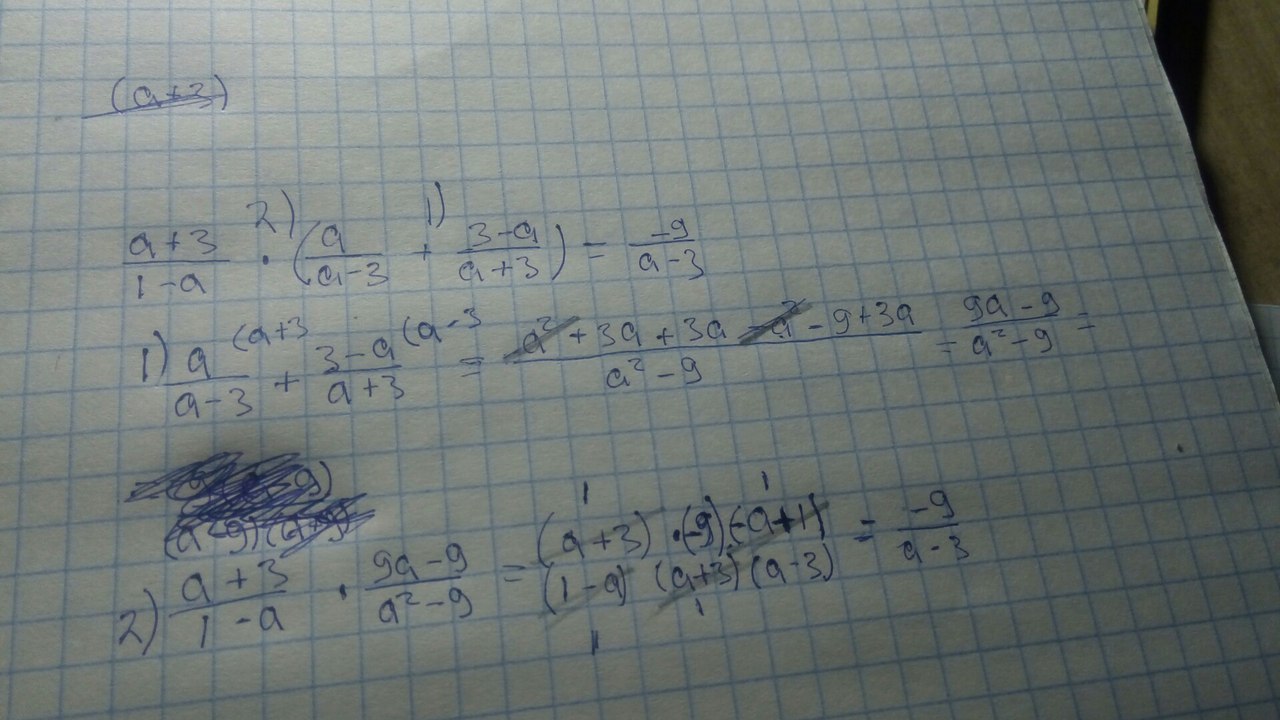 (a+3)
a+3/1-a · (a/a-3 + 3-a/a+3) = -9/a-3
2) 1)
1) a/a-3 (a+3 + 3-a/a+3 (a-3 = a² + 3a + 3a - a² - 9 + 3a/a² - 9 = 9a - 9/a² - 9 =
2) a+3/1-a · 9a-9/a²-9 = (a+3) · (-9)(-a+1)/(1-a) (a+3) (a-3) = -9/a-3
1 1
1 1